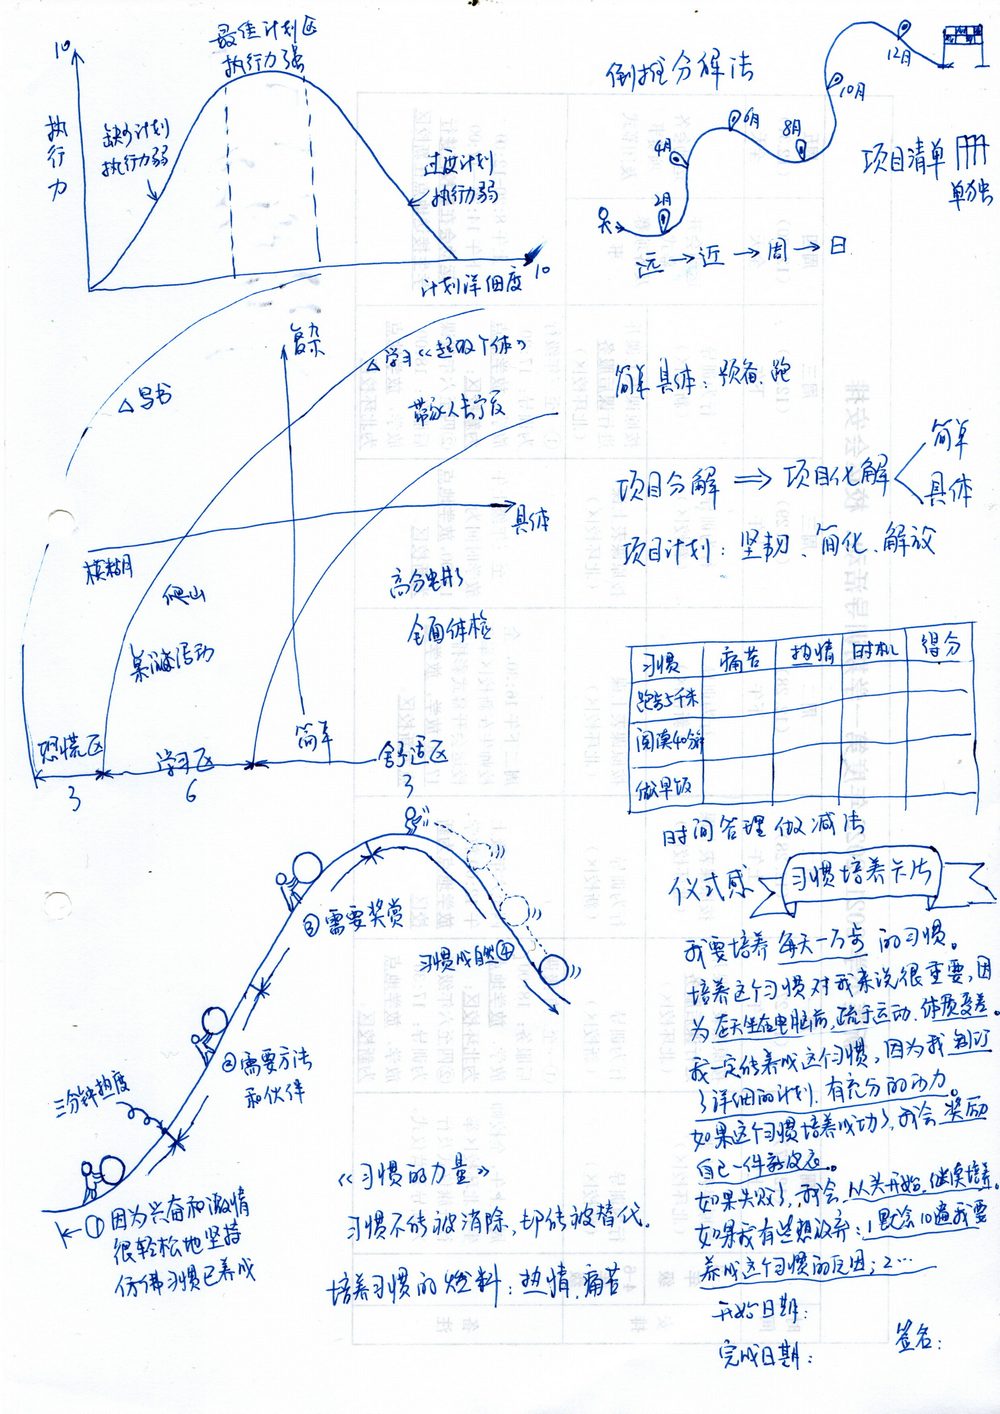 最佳计划区
执行力强
10
执行力
缺少计划
执行力弱
过度计划
执行力弱
计划详细度
10
倒推分解法
2月
4月
6月
8月
10月
12月
项目清单
单独
远→近→周→日
复杂
△写书
△学习《超级个体》
带家人去宁夏
具体
模糊
爬山
集体活动
高分电影
全面体检
简单
恐慌区
学习区
舒适区
3
6
3
简单具体：预备、跑
项目分解⇒项目化解
简单
具体
项目计划：坚韧、简化、解放
习惯 痛苦 热情 时机 得分
跑步5千米
阅读40分钟
做早饭
时间管理做减法
仪式感
习惯培养卡片
我要培养每天一万步的习惯。
培养这个习惯对我来说很重要,因
为在天坐在电脑前,疏于运动、体质变差。
我一定能养成这个习惯,因为我制订
了详细的计划,有充分的动力。
如果这个习惯培养成功了,我会奖励
自己一件新皮衣。
如果失败了,我会,从头开始,继续培养。
如果我有些想放弃:1默念10遍我要
养成这个习惯的原因;2…
开始日期:
完成日期:
签名:
③需要奖赏
习惯成自然④
②需要方法
和伙伴
三分钟热度
①因为兴奋和激情
很轻松地坚持
仿佛习惯已养成
《习惯的力量》
习惯不能被消除,却能被替代.
培养习惯的燃料：热情、痛苦